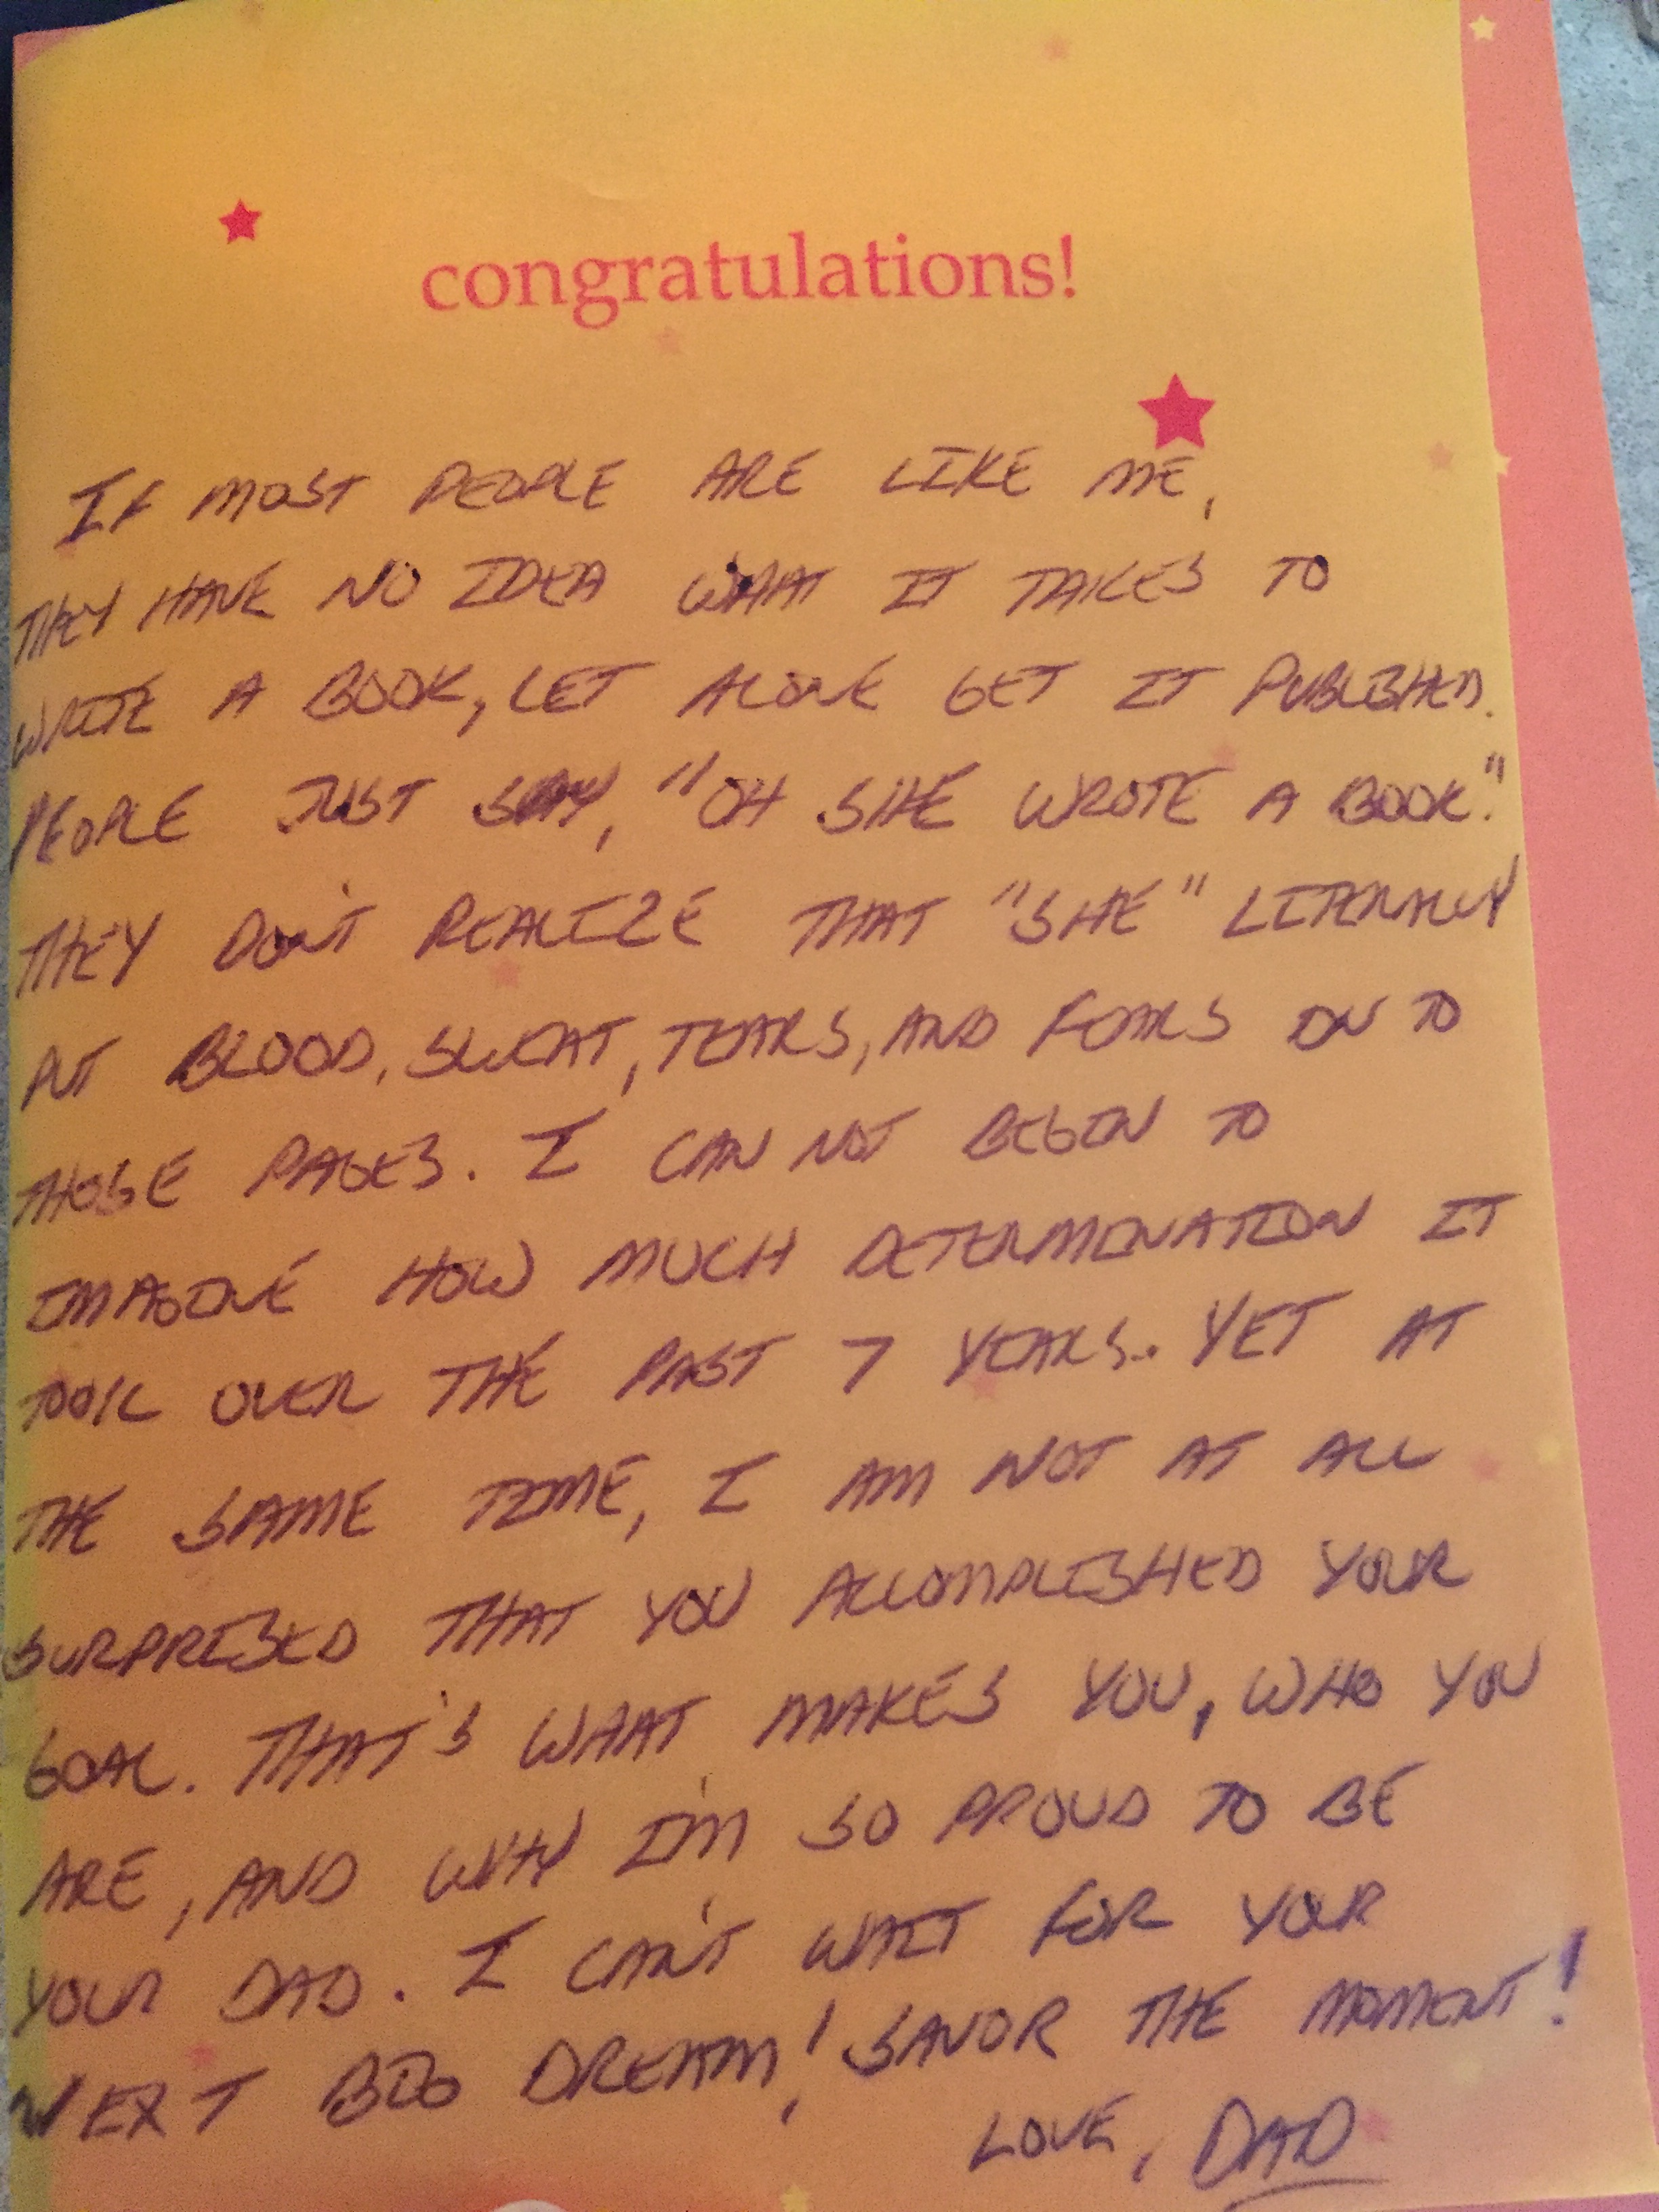 congratulations!
IF MOST PEOPLE ARE LIKE ME,
THEY HAVE NO IDEA WHAT IT TAKES TO
WRITE A BOOK, LET ALONE GET IT PUBLISHED.
PEOPLE JUST SAY, "OH SHE WROTE A BOOK."
THEY DON'T REALIZE THAT "SHE" LITERALLY
PUT BLOOD, SWEAT, TEARS, AND FEARS ON TO
THOSE PAGES. I CAN NOT BEGIN TO
IMAGINE HOW MUCH DETERMINATION IT
TOOK OVER THE PAST 7 YEARS.. YET AT
THE SAME TIME, I AM NOT AT ALL
SURPRISED THAT YOU ACCOMPLISHED YOUR
GOAL. THAT'S WHAT MAKES YOU, WHO YOU
ARE, AND WHY I'M SO PROUD TO BE
YOUR DAD. I CAN'T WAIT FOR YOUR
NEXT BIG DREAM! SAVOR THE MOMENT!
LOVE, DAD